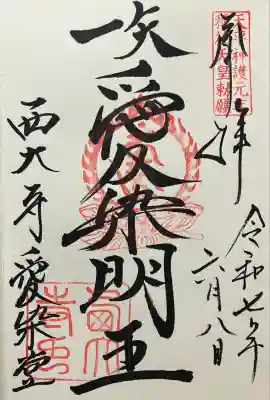 天平神護元年
称徳天皇勅願
奉拝
令和七年
六月八日
愛染明王
西大寺 愛染堂